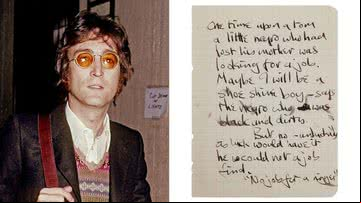 One time upon a tom
a little negro who had
lost his mother was
looking for a job.
Maybe I will be a
shoe shine boy - says
the negro who was
black and dirty.
But no - unluckily
as luck would have it
he could not a job
find.
"No job for a